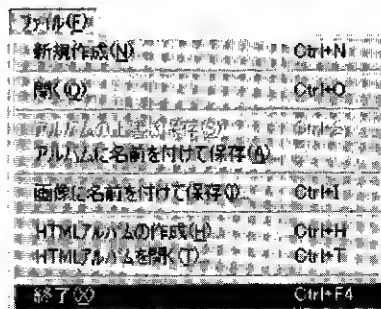 ファイル(F)
新規作成(N) Ctrl+N
開く(O) Ctrl+O
アルバムの上書き保存(S) Ctrl+S
アルバムに名前を付けて保存(A)
画像に名前を付けて保存(I) Ctrl+I
HTMLアルバムの作成(H) Ctrl+H
HTMLアルバムを開く(T) Ctrl+T
終了(X) Ctrl+F4